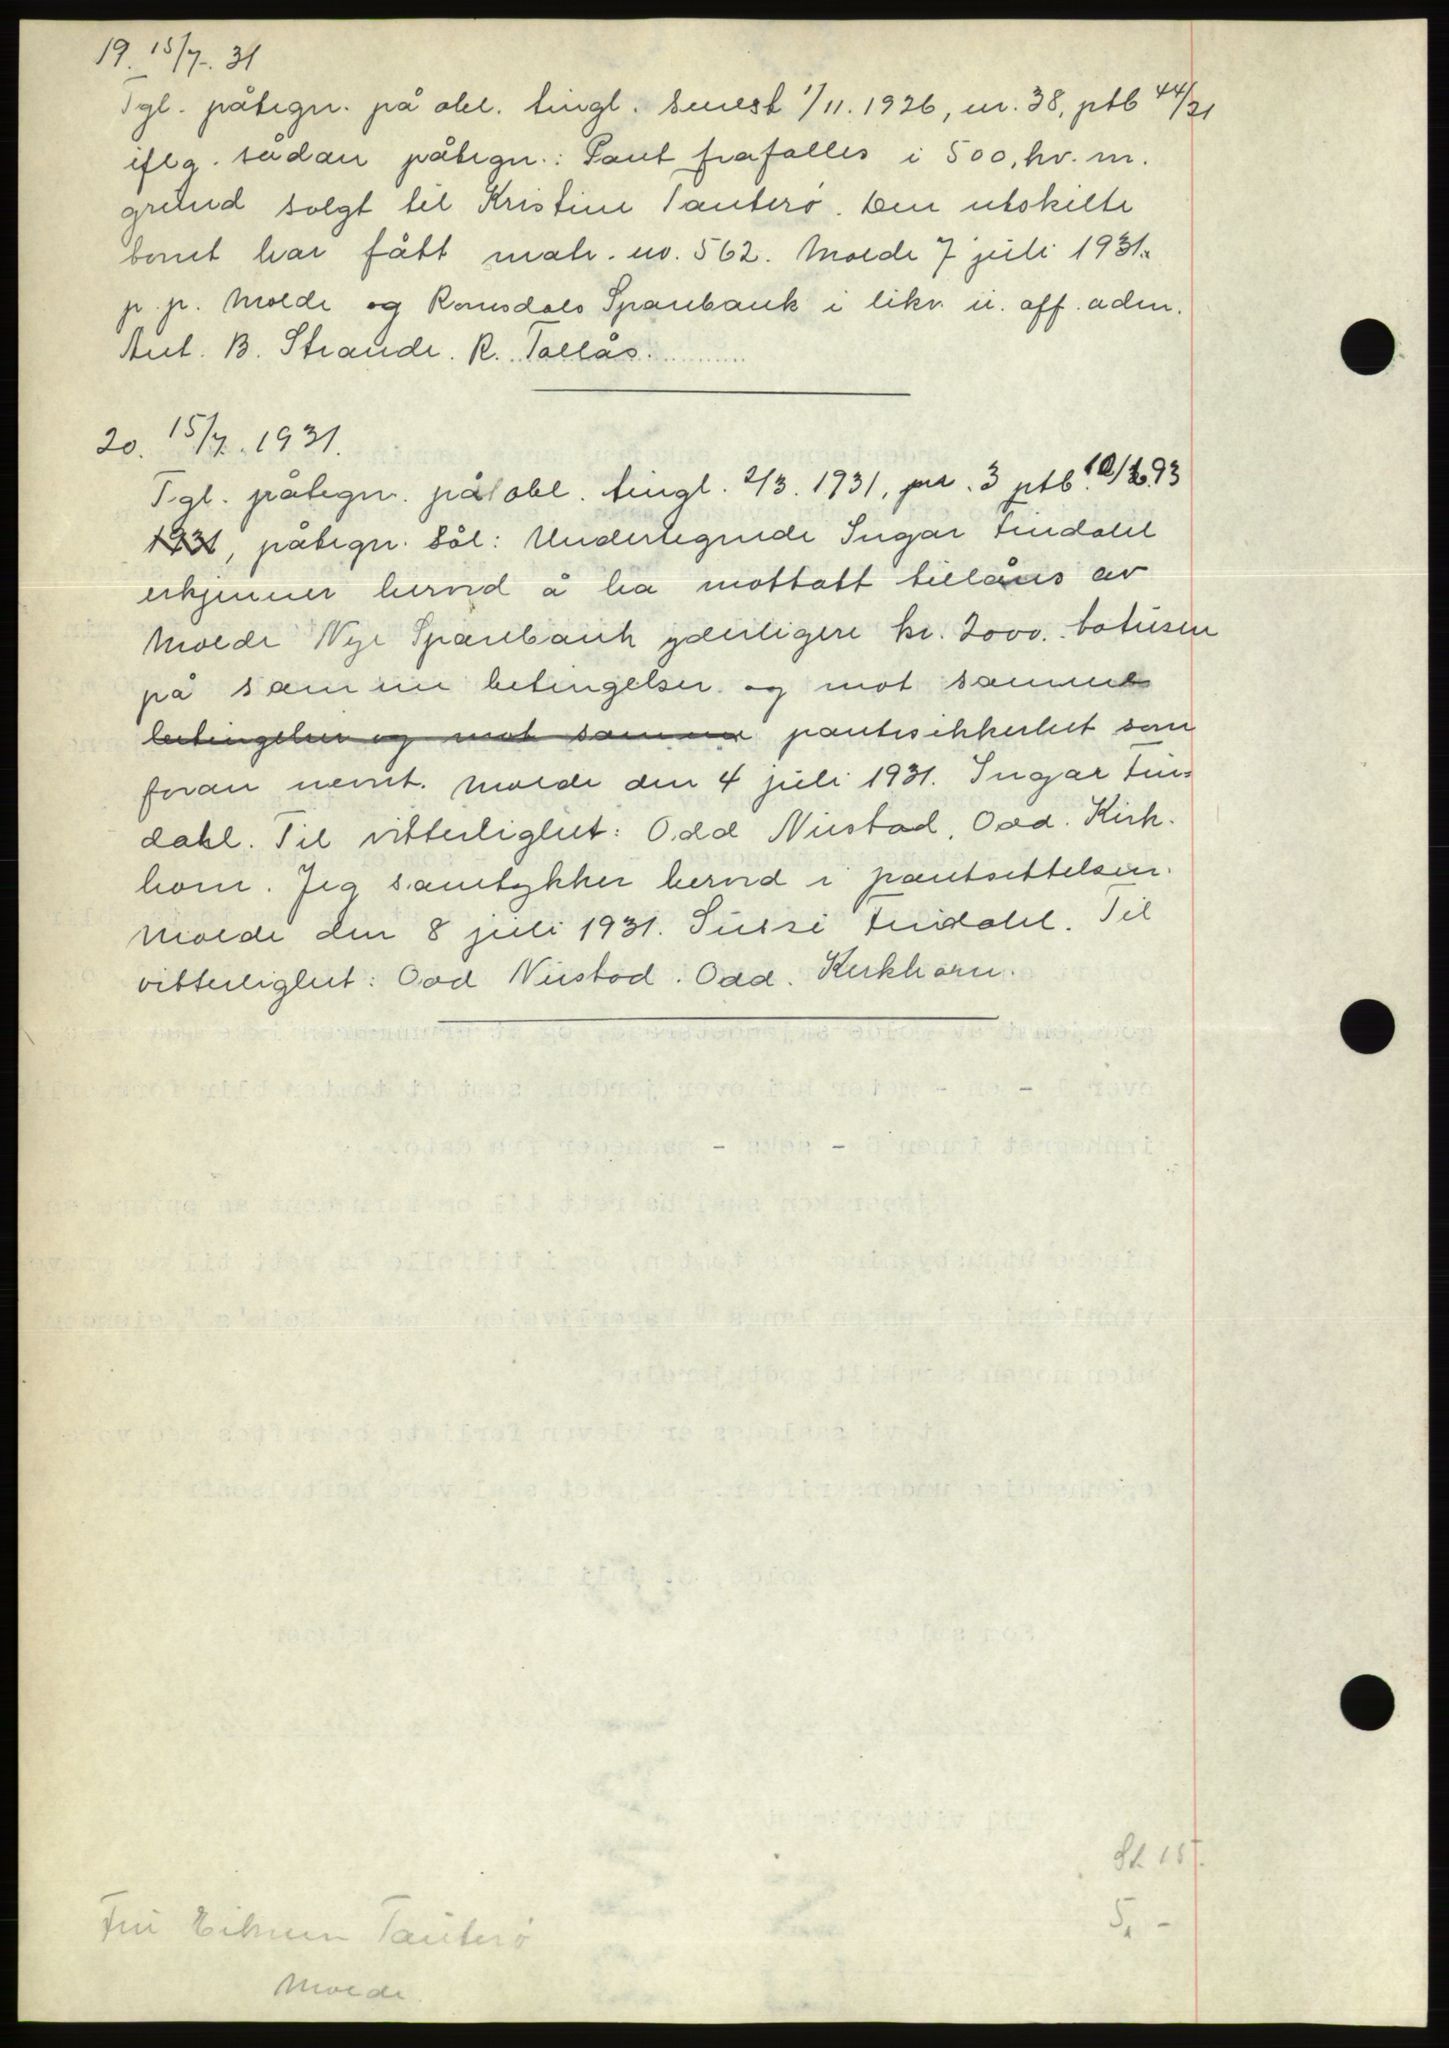 19. 15/7. 31
Tgl. påtegn. på obl. tingl. senest 1/11. 1926, nr. 38, ptb 44/21
iflg. sådan påtegn.: Pant frafalles i 500, kv. m.
grund solgt til Kristine Tauterø. Den utskilte
tomt har fått matr. no. 562. Molde 7 juli 1931.
p. p. Molde og Romsdals Sparebank i likv. u. off. adm.
Ant. B. Strande. R. Tollås.
20. 15/7. 1931.
Tgl. påtegn. på obl. tingl. 2/3. 1931, nr. 3 ptb. 93
1931, påtegn. Sål: Undertegnede Ingar Findahl
erkjenner herved å ha mottatt tillåns av
Molde Nye Sparebank yderligere kr. 2000. totusen
på samme betingelser og mot samme
betingelser og mot samme pantesikkerhet som
foran nevnt. Molde den 4 juli 1931. Ingar Fin-
dahl. Til vitterlighet: Odd Nustad, Odd. Kirk-
horn. Jeg samtykker herved i pantsettelsen.
Molde den 8 juli 1931. Sussi Findahl. Til
vitterlighet: Odd Nustad. Odd. Kirkhorn.
St. 15.
Fru Tauterø
5, -
Molde.